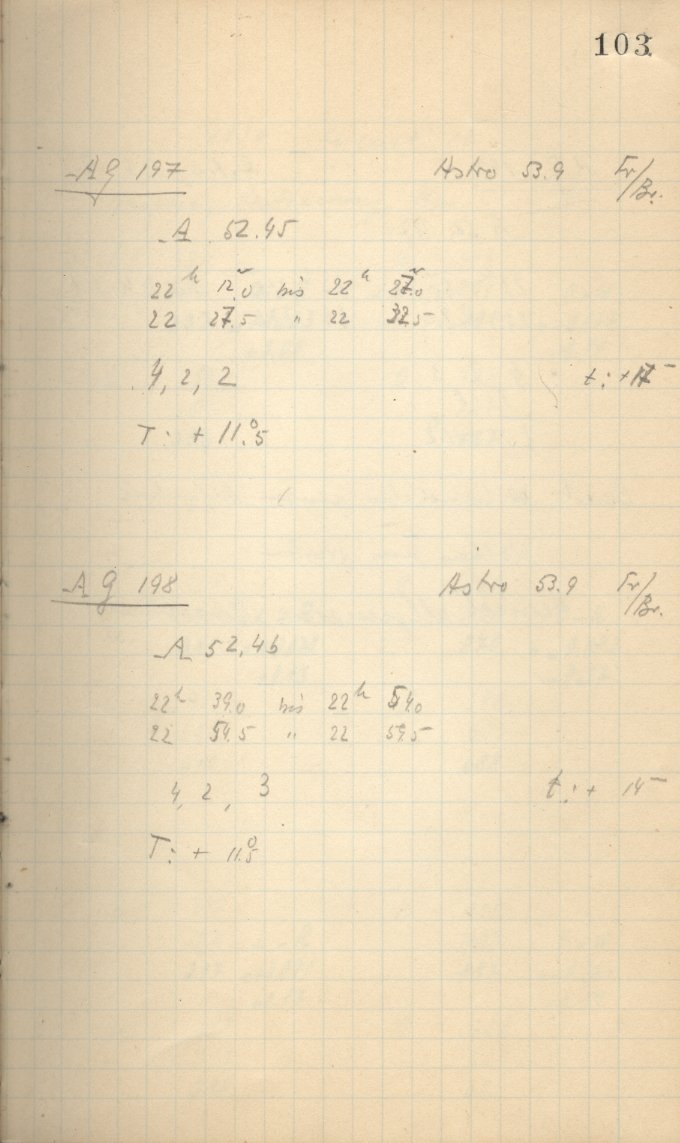 103
AG 197 Astro 53.9 Fr/Br.
A 52.45
22h 12m.0 bis 22h 27m.0
22 27.5 " 22 32.5
4, 2, 2 t: +
T: + 11.°5
AG 198 Astro 53.9 Fr/Br.
A 52.46
22h 39.0 bis 22h 54.0
22 54.5 " 22 59.5
4, 2, 3 t: + 14
T: + 11.°5